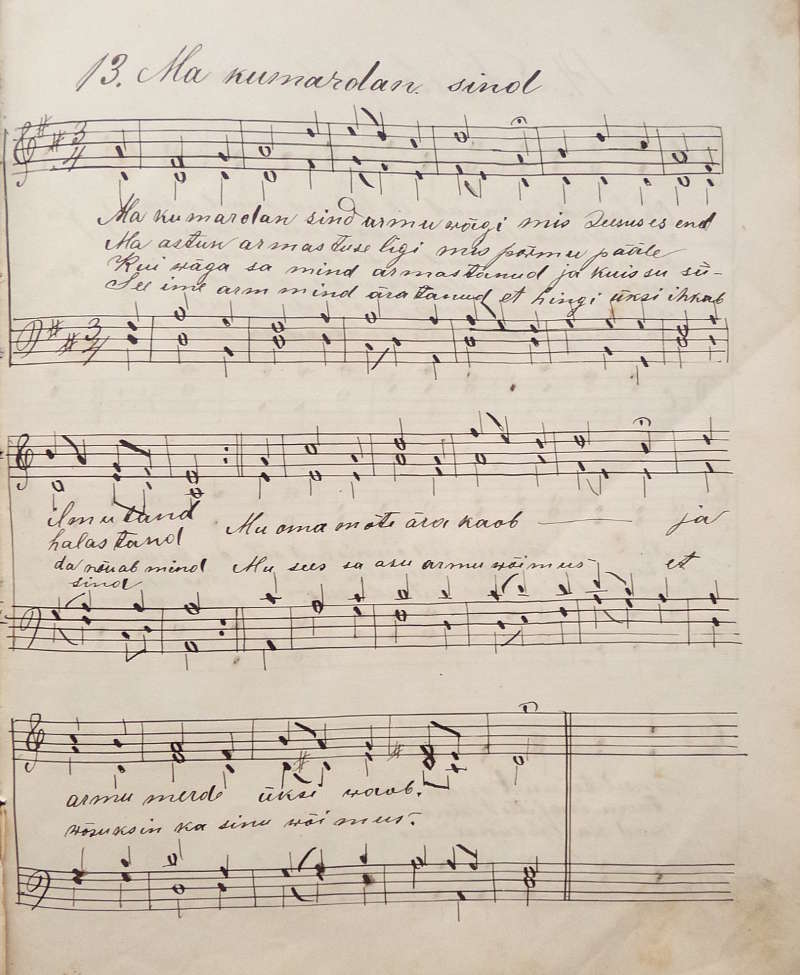 13. Ma kumardan sind
3/4
Ma kumardan sind armu wägi mis Jeesuses end
Ma astun armastuse ligi mis põrmu pääle
Kui wäga sa mind armastanud ja kuis su sü-
See ime arm mind äratanud et hingi üksi ihkab
3/4
ilmutand
halastand Mu oma mõte ära kaob — ja
da nõuab mind Mu sees sa asu armu wõimus et
sind
armu merde üksi waob.
wõsuksin ka sinu wõimus.